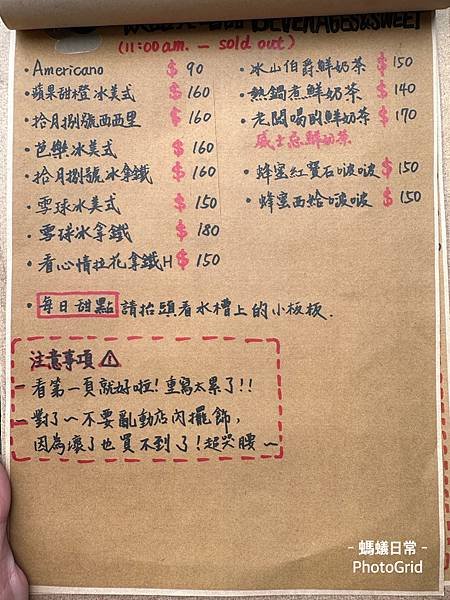 BEVERAGES&SWEET
(11:00 a.m. — sold out)
• Americano $ 90
• 蘋果甜橙冰美式 $ 160
• 拾月捌號西西里 $ 160
• 芭樂冰美式 $ 160
• 拾月捌號冰拿鐵 $ 160
• 雪球冰美式 $ 150
• 雪球冰拿鐵 $ 180
• 看心情拉花拿鐵H $ 150
• 冰山伯爵鮮奶茶 $ 150
• 熱鍋煮鮮奶茶 $ 140
• 老闆喝的鮮奶茶 $ 170
威士忌鮮奶茶
• 蜂蜜紅寶石啵啵 $ 150
• 蜂蜜西給啵啵 $ 150
• 每日甜點 請抬頭看水槽上的小板板.
注意事項 ⚠
— 看第一頁就好啦!重寫太累了!!
— 對了~不要亂動店內擺飾,
因為壞了也買不到了!超哭腰~
- 螞蟻日常 -
PhotoGrid